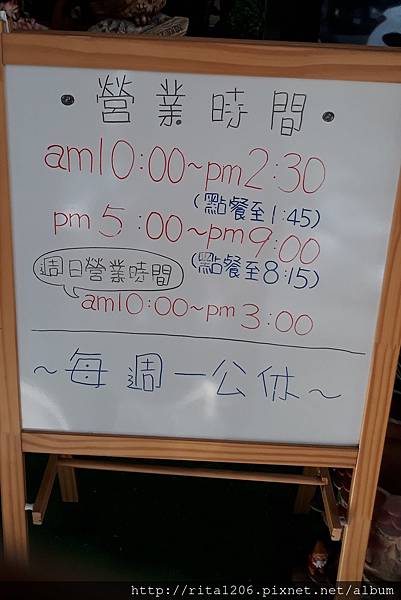 •營業時間•
am10:00~pm2:30
(點餐至1:45)
pm5:00~pm9:00
(點餐至8:15)
週日營業時間
am10:00~pm3:00
~每週一公休~
http://rita1206.pixnet.net/album